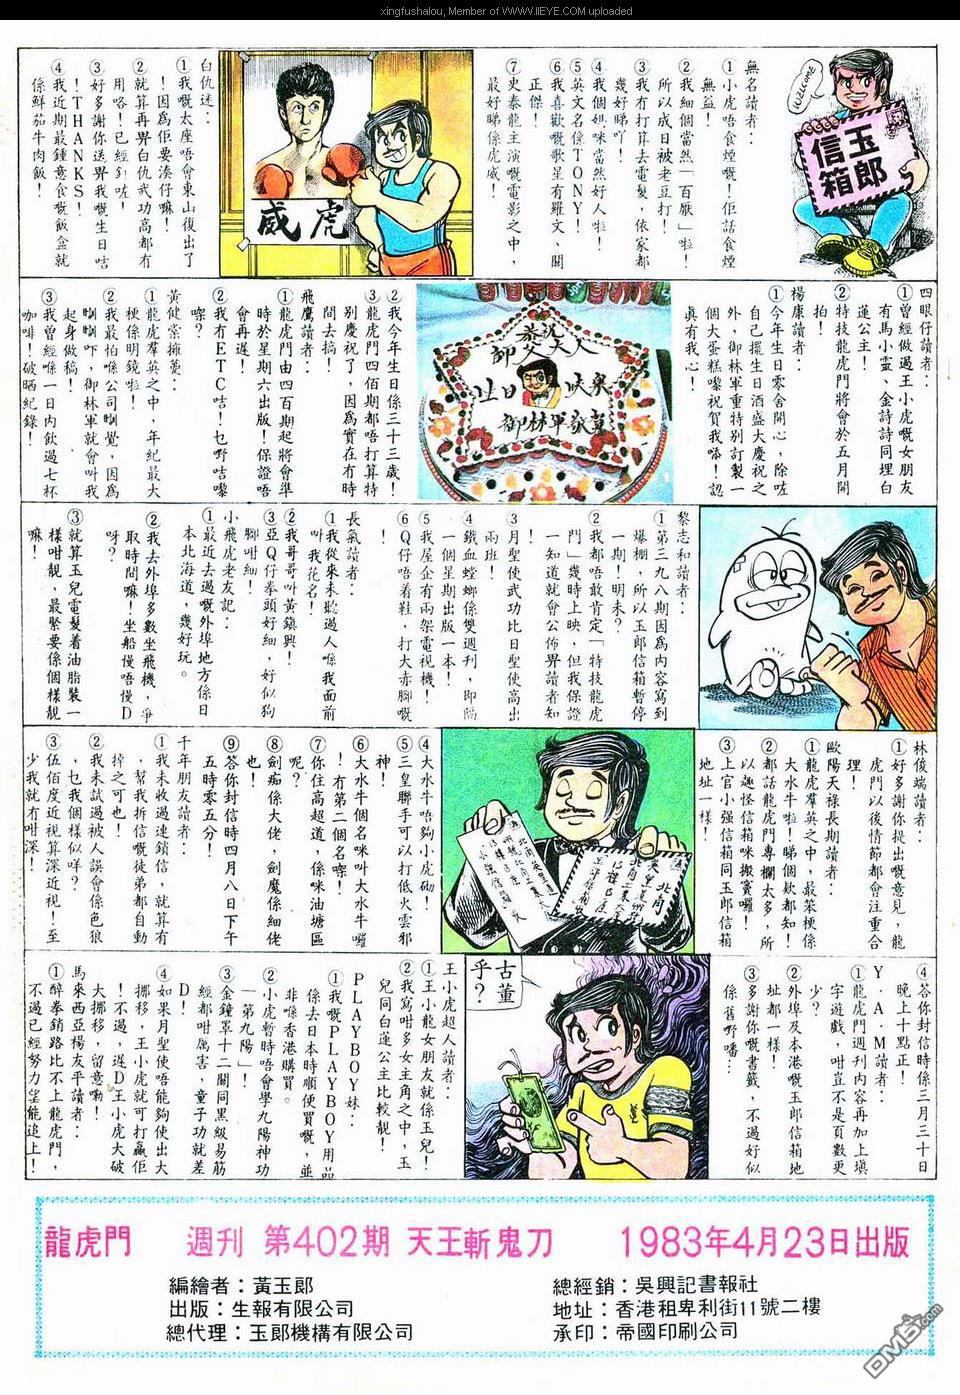 xingfushalou, Member of WWW.IIEYE.COM uploaded
WELCOME
玉郎
信箱
無名讀者：
①小虎唔食煙嘅！佢話食煙
無益！
②我細個當然「百厭」啦！
所以成日被老豆打！
③我冇打算去電髮，依家都
幾好睇吖！
④我個媽咪當然好人啦！
⑤英文名係TONY！
⑥我喜歡嘅歌星有羅文、關
正傑！
⑦史泰龍主演嘅電影之中，
最好睇係虎威！
虎威
白仇迷：
①我嘅太座唔會東山復出了
！因爲佢要湊仔嘛！
②就算再畀白仇武功高都冇
用咯！已經釘咗！
③好多謝你送畀我嘅生日咭
！THANKS！
④我近期最鍾意食嘅飯盒就
係鮮茄牛肉飯！
四眼仔讀者：
①我曾經做過王小虎嘅女朋友
有馬小靈、金詩詩同埋白
蓮公主！
②特技龍虎門將會於五月開
拍！
楊康讀者：
①今年生日零舍開心，除咗
自己擺生日酒盛大慶祝之
外，御林軍重特別訂製一
個大蛋糕嚟祝賀我𠻹！認
真有我心！
御林軍敬賀
②我今年生日係三十三歲！
③龍虎門四佰期都唔打算特
別慶祝了，因爲實在冇時
間去搞！
飛鷹讀者：
①龍虎門由四百期起將會準
時於星期六出版！保證唔
會再遲！
②我冇ETC咭！乜嘢咭嚟
㗎？
黃健棠擁躉：
①龍虎羣英之中，年紀最大
梗係明鏡啦！
②我最怕喺公司瞓覺，因爲
瞓瞓吓，御林軍就會叫我
起身做稿！
③我曾經喺一日內飲過七杯
咖啡！破晒紀錄！
黎志和讀者：
①第三九八期因爲內容寫到
爆棚，所以玉郎信箱暫停
一期！明未？
②我都唔敢肯定「特技龍虎
門」幾時上映，但我保證
一知道就會公佈畀讀者知
！
③月聖使武功比日聖使高出
兩班！
④鐵血螳螂係雙週刊，即隔
一個星期出版一本！
⑤我屋企有兩架電視機！
⑥Q仔唔着鞋，打大赤腳嘅
！
長氣讀者：
①我從來未聽過人喺我面前
叫我花名！
②我哥哥叫黃鎮興！
③亞Q仔拳頭好細，好似狗
脚咁細！
小飛虎老友記：
①最近去過嘅外埠地方係日
本北海道，幾好玩。
②我去外埠多數坐飛機，爭
取時間嘛！坐船慢唔慢D
呀？
③就算玉兒電髮着油脂裝一
樣咁靚，最緊要係個樣靚
嘛！
林俊端讀者：
①好多謝你提出嘅意見，龍
虎門以後情節都會注重合
理！
歐陽天祿長期讀者：
①龍虎羣英之中，最笨梗係
大水牛啦！睇個款都知！
②都話龍虎門專欄太多，所
以趣怪信箱咪搬竇囉！
③上官小强信箱同玉郎信箱
地址一樣！
④大水牛唔夠小虎砌！
⑤三皇聯手可以打低火雲邪
神！
⑥大水牛個名咪叫大水牛囉
！冇第二個名㗎！
⑦你住高超道，係咪油塘區
呢？
⑧劍痴係大佬，劍魔係細佬
也！
⑨答你封信時四月八日下午
五時零五分！
千年朋友讀者：
①我未收過連鎖信，就算有
，幫我拆信嘅徒弟都自動
掉之可也！
②我未試過被人誤會係色狼
，乜我個樣似咩？
③伍佰度近視算深近視！至
少我就冇咁深！
④答你封信時係三月三十日
晚上十點正！
Y．A．M讀者：
①龍虎門週刊內容再加上填
字遊戲，咁豈不是頁數更
少？
②外埠及本港嘅玉郎信箱地
址都一樣！
③多謝你嘅書籤，不過好似
係舊嘢噃…
古董乎？
王小虎超人讀者：
①王小龍女朋友就係玉兒！
②我寫咁多女主角之中，玉
兒同白蓮公主比較靚！
PLAYBOY妹：
①我嘅PLAYBOY用品
係去日本時順便買嘅，並
非喺香港購買。
②小虎暫時唔會學九陽神功
「第九陽」！
③金鐘罩十二關同黑級易筋
經都咁厲害，童子功就差
D！
④如果月聖使唔能夠使出大
挪移，王小虎就可打贏佢
！不過，遲D王小虎大破
大挪移，留意嘞！
馬來西亞楊友乎讀者：
①醉拳銷路比不上龍虎門，
不過已經努力望能追上！
龍虎門　週刊 第402期 天王斬鬼刀　1983年4月23日出版
編繪者：黃玉郎
出版：生報有限公司
總代理：玉郎機構有限公司
總經銷：吳興記書報社
地址：香港租卑利街11號二樓
承印：帝國印刷公司
DM5.com